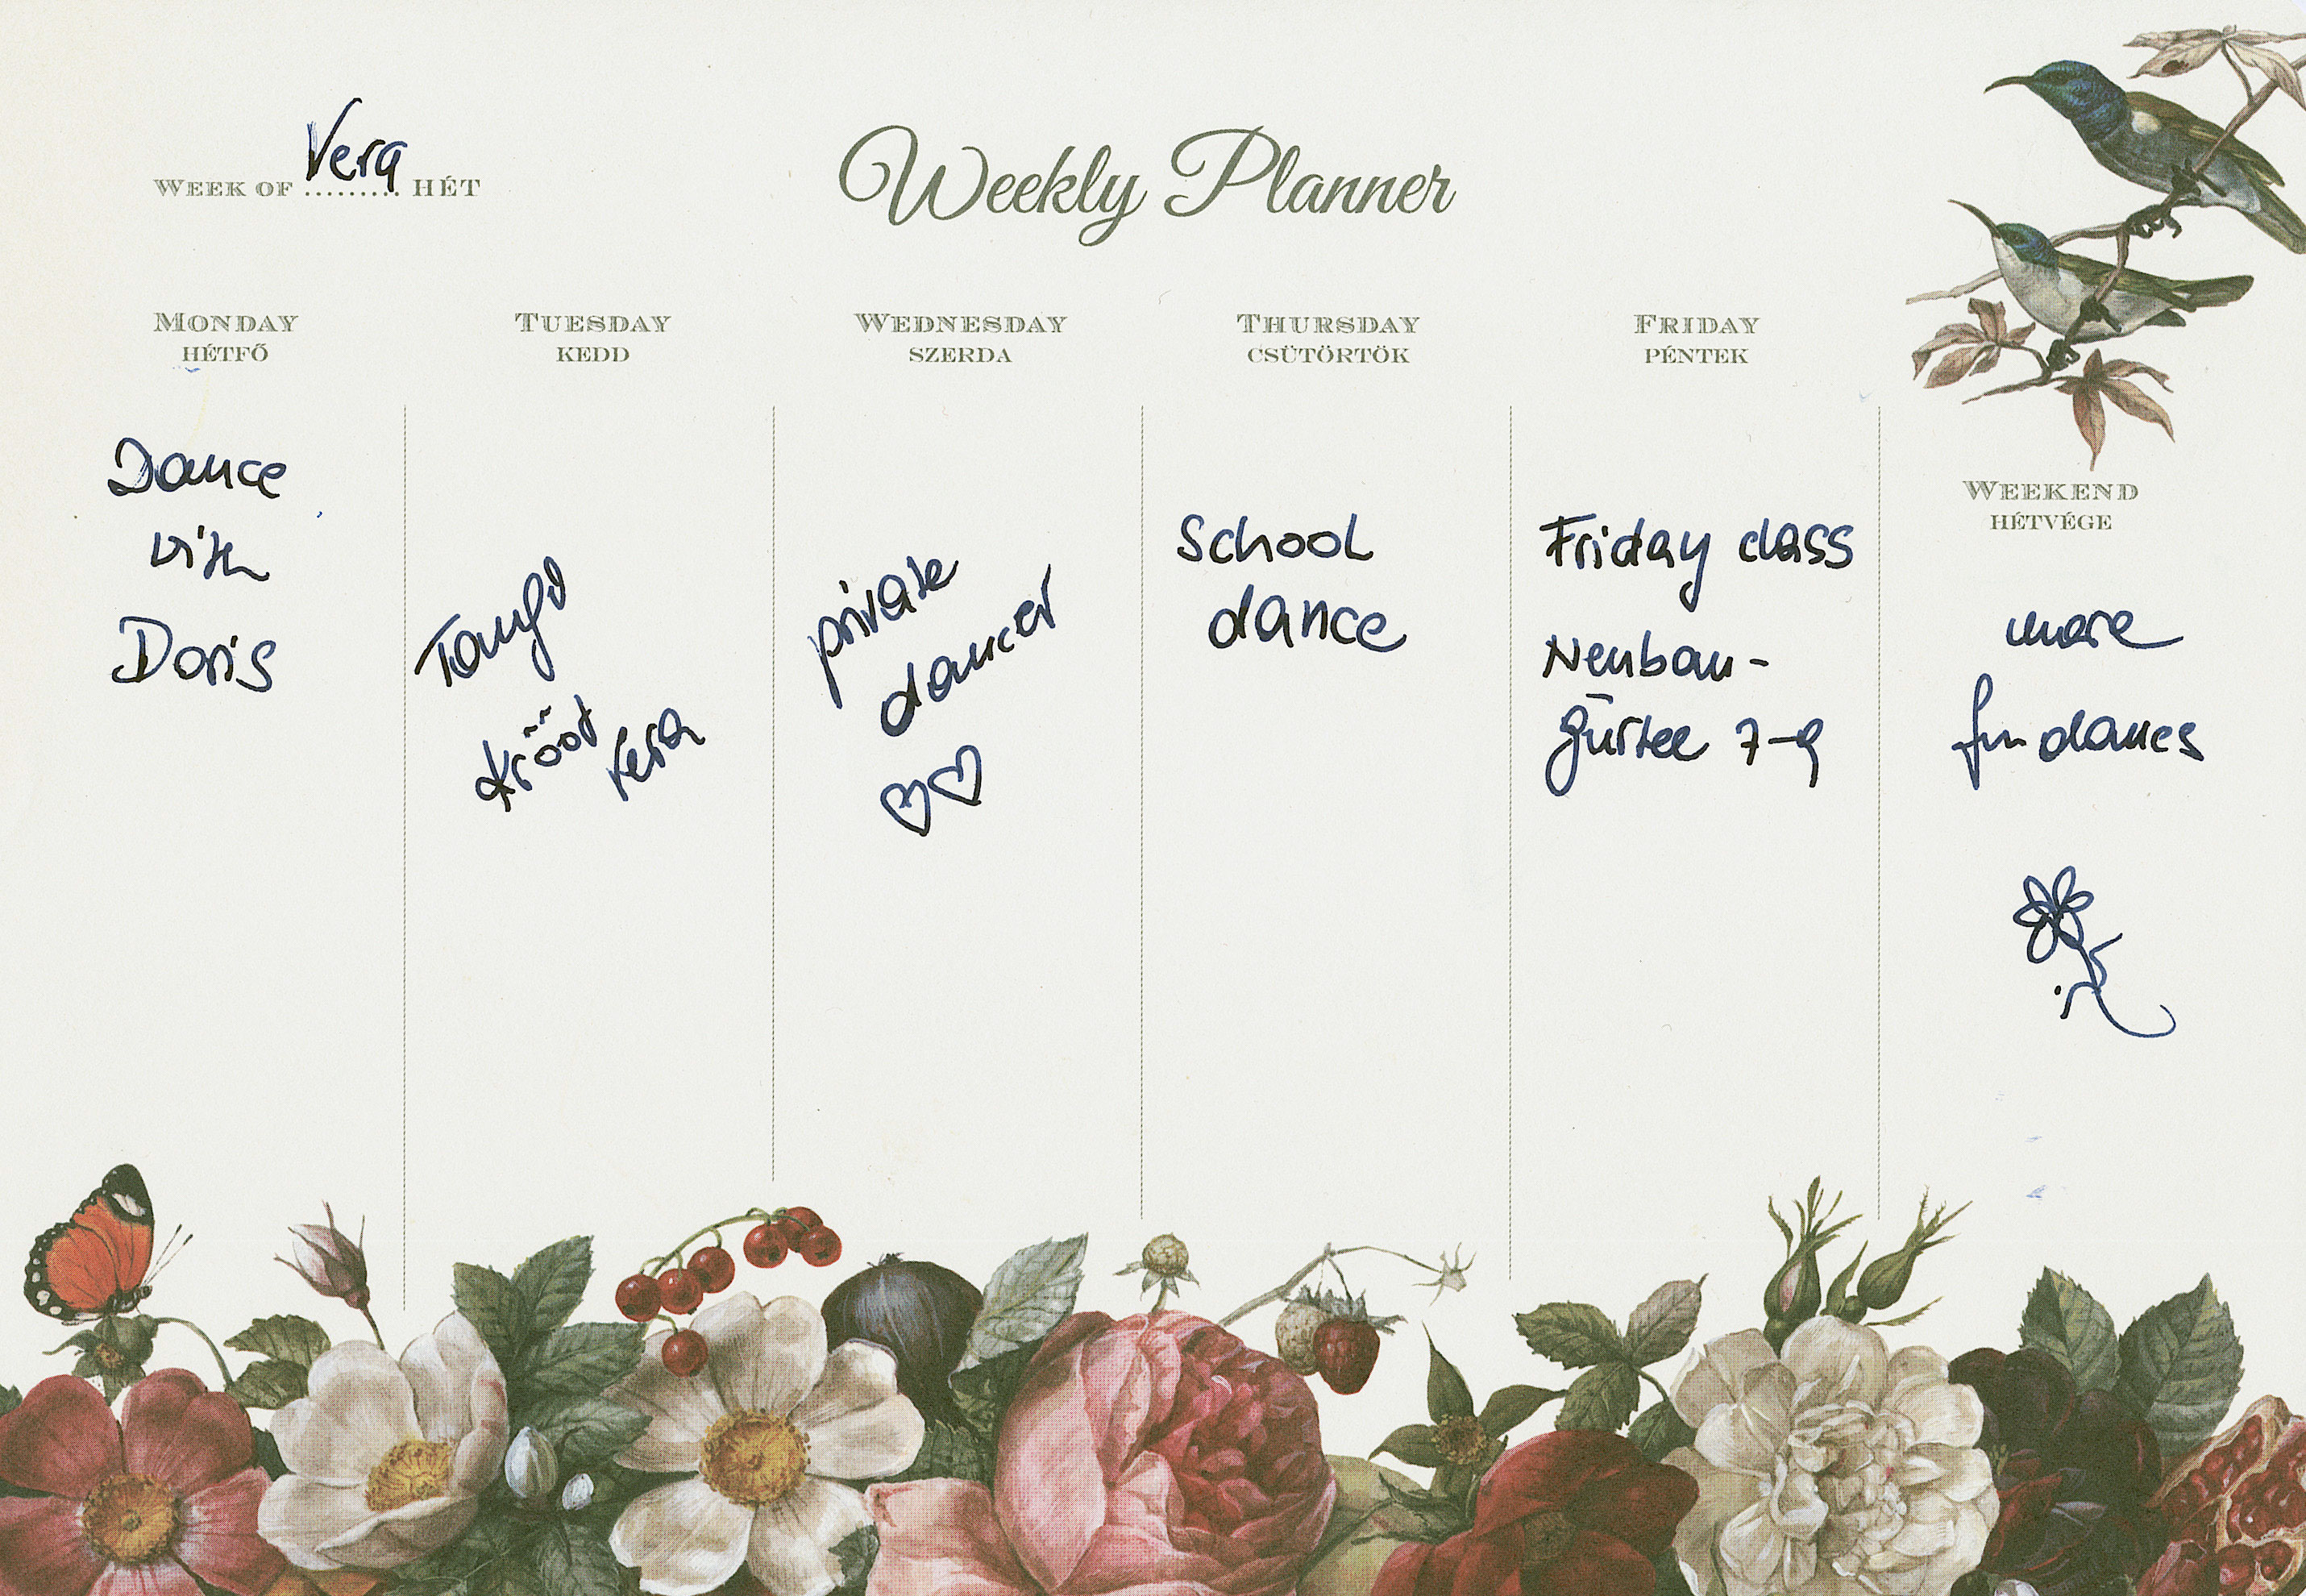 Vera
WEEK OF ......... HÉT
Weekly Planner
MONDAY
HÉTFŐ
Dance
with
Doris
TUESDAY
KEDD
Tango
WEDNESDAY
SZERDA
private
dancer
THURSDAY
CSÜTÖRTÖK
School
dance
FRIDAY
PÉNTEK
Friday class
Neubau-
gürtel 7-9
WEEKEND
HÉTVÉGE
more
fun dances